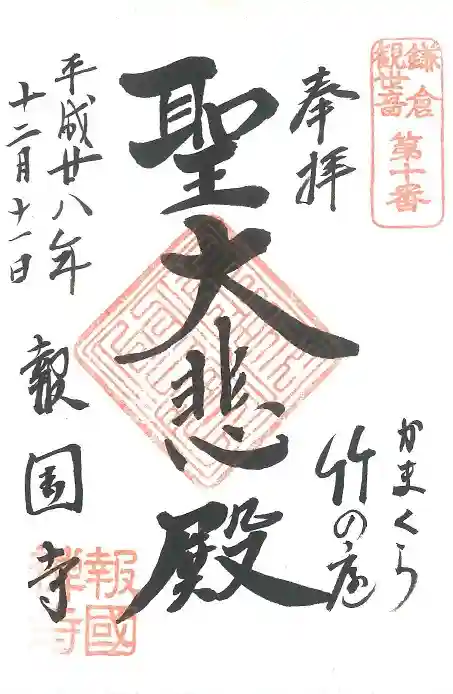 鎌倉
観世音
第十番
奉拝
かまくら
竹の庭
聖大悲殿
平成廿八年
十二月十一日
報国寺
報國
禅寺